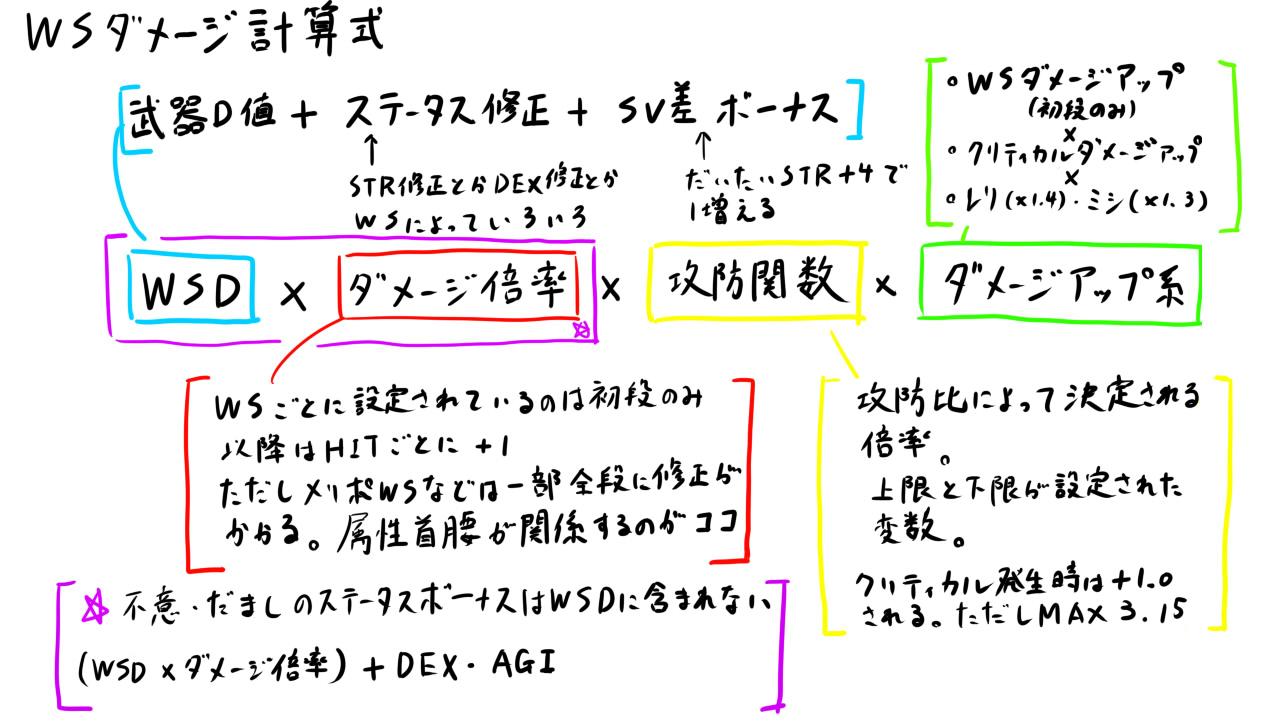 WSダメージ計算式
武器D値 + ステータス修正 + SV差 ボーナス
↑
STR修正とかDEX修正とか
WSによっていろいろ
↑
だいたいSTR+4で
1増える
・WSダメージアップ
(初段のみ)
×
・クリティカルダメージアップ
×
・レリ(×1.4)・ミシ(×1.3)
WSD × ダメージ倍率 × 攻防関数 × ダメージアップ系
☆
WSごとに設定されているのは初段のみ
以降はHITごとに+1
ただしメリポWSなどは一部全段に修正が
かかる。属性首腰が関係するのがココ
攻防比によって決定される
倍率。
上限と下限が設定された
変数。
クリティカル発生時は+1.0
される。ただしMAX 3.15
☆ 不意・だましのステータスボーナスはWSDに含まれない
(WSD × ダメージ倍率) + DEX・AGI